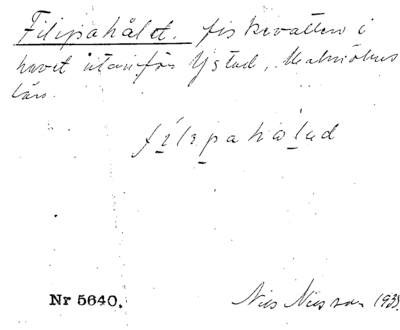 Filipahålet. fiskevatten i
havet utanför Ystad, Malmöhus
län.
filepahålad
Nr 5640.
Nils Nilsson